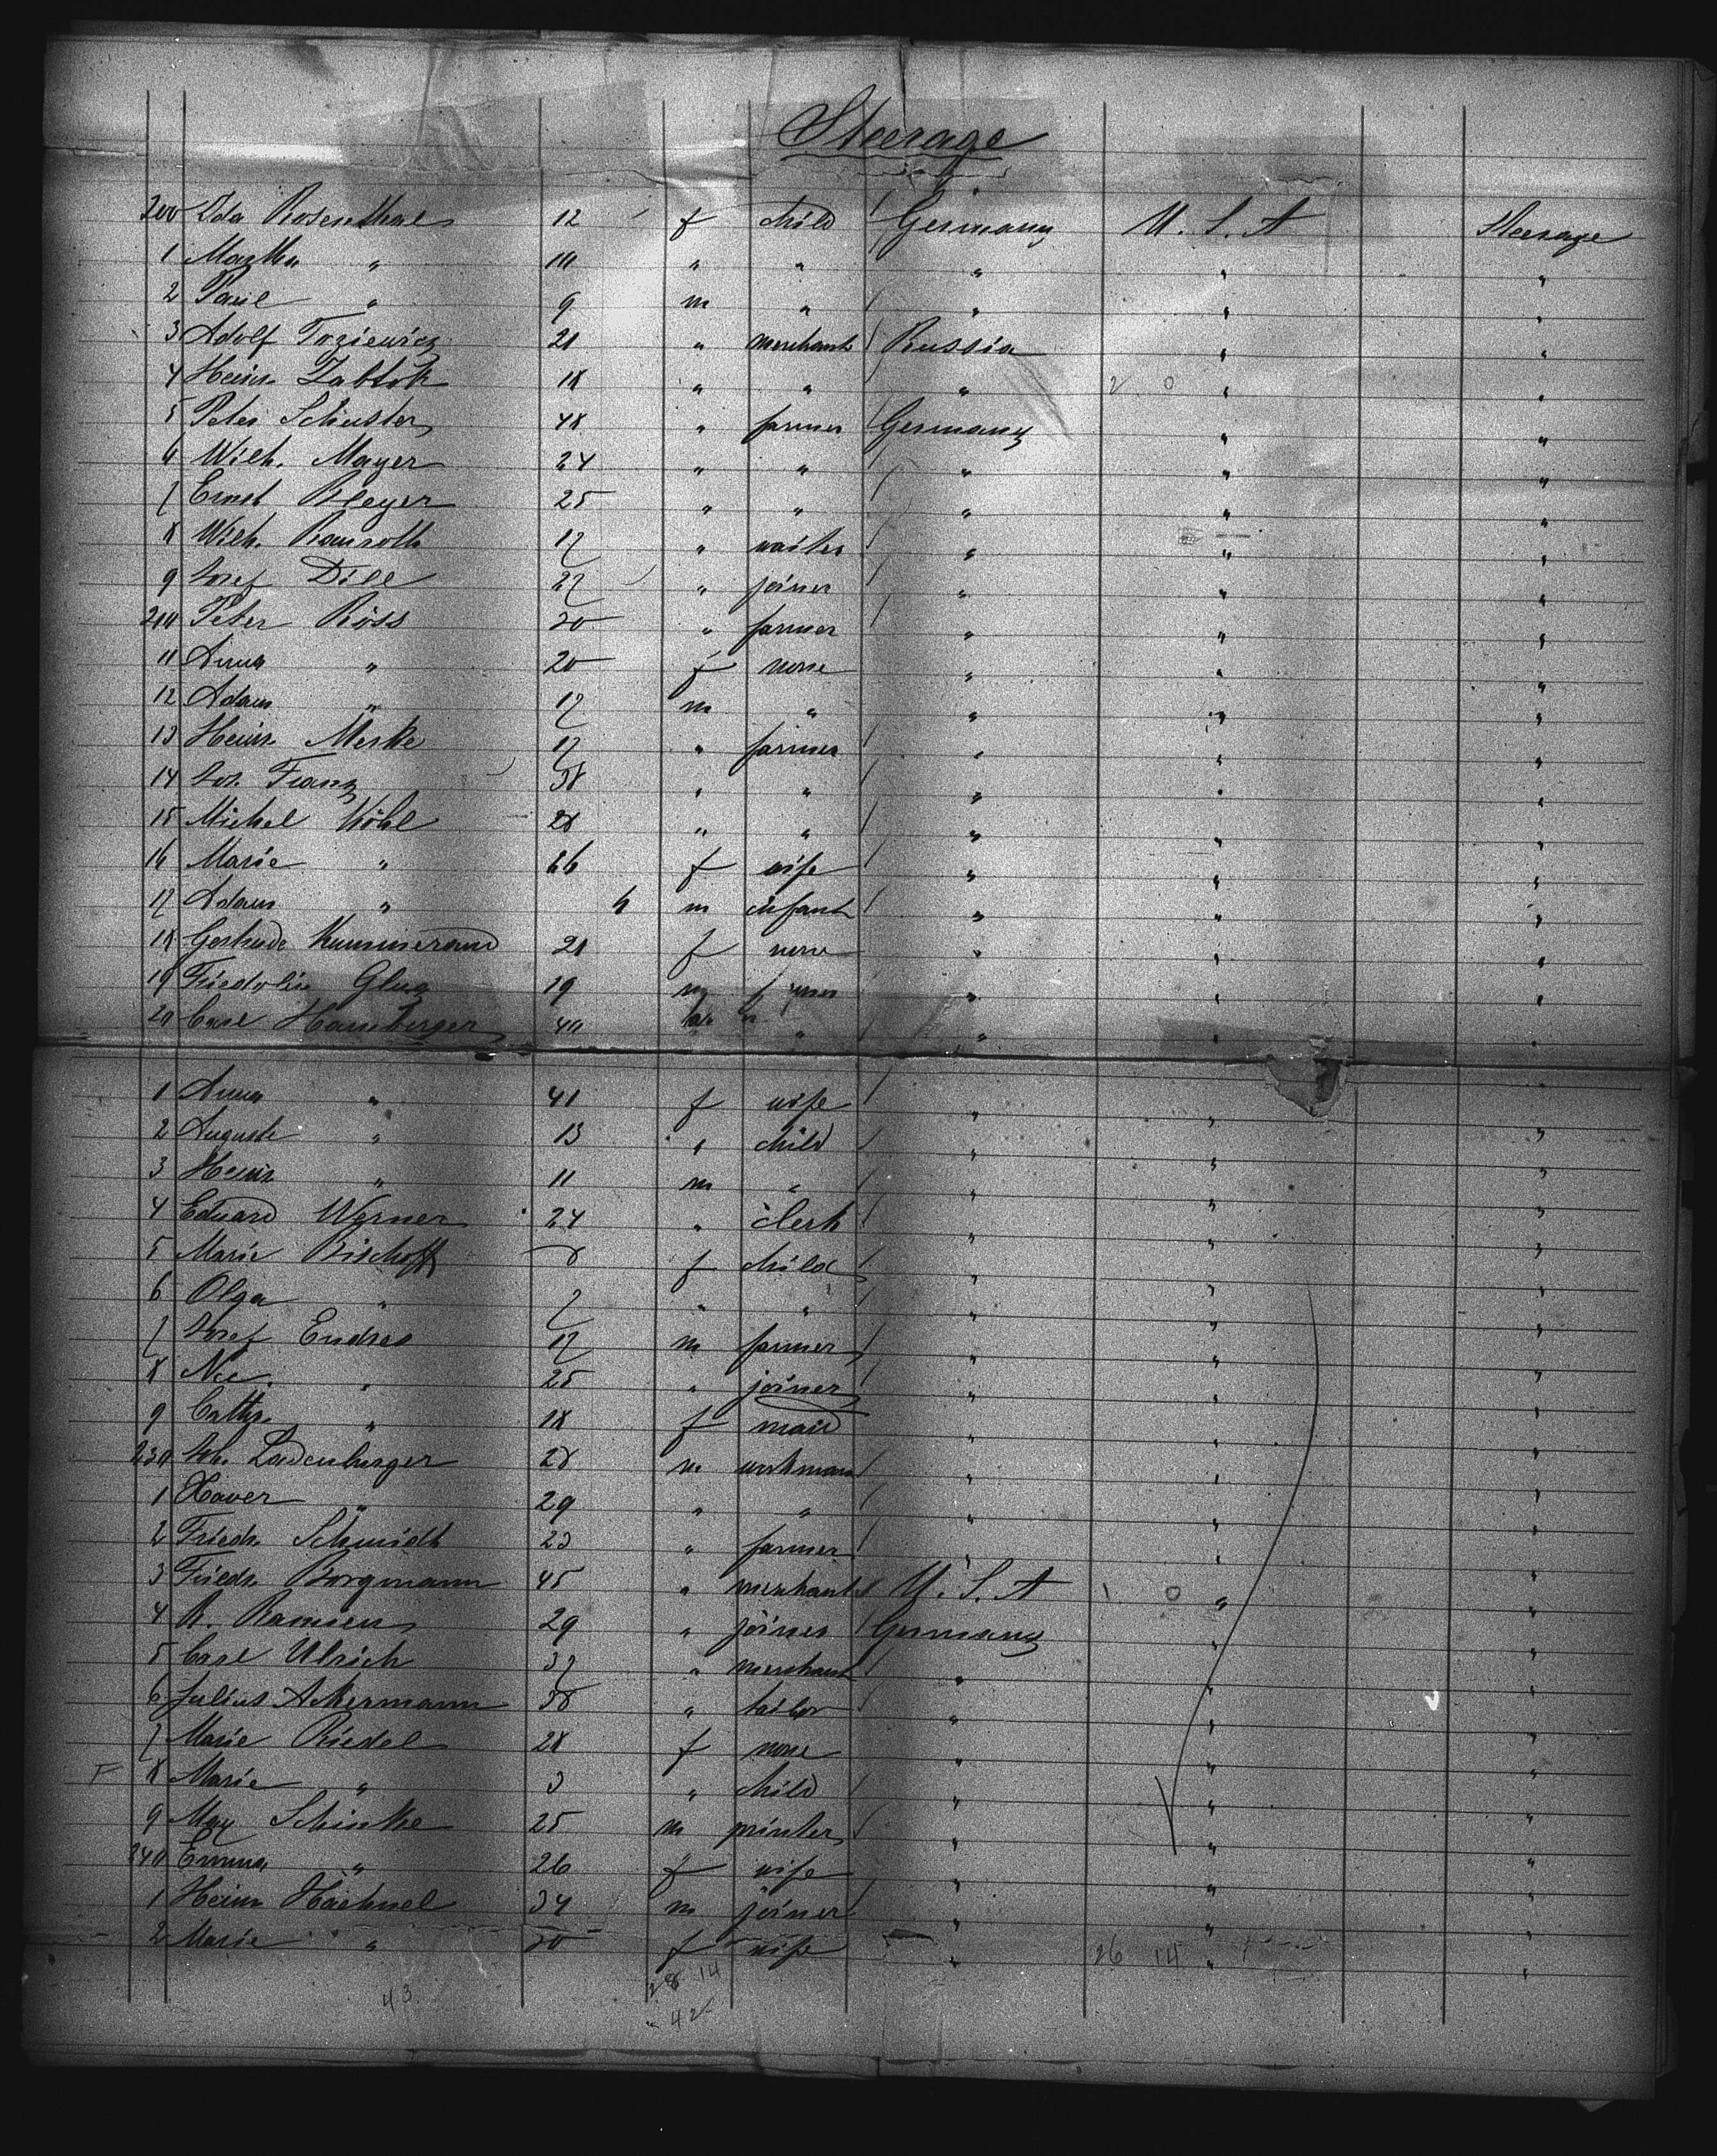 Steerage
200 Ida Rosenthal 12 f child Germany U. S. A Steerage
1 Martha " 10 " " " " "
2 Paul " 9 m " " " "
3 Adolf 21 " merchant Russia " "
4 Heinr. 18 " " " 2 0 " "
5 Peter Schuster 48 " farmer Germany " "
6 Wilh. Mayer 24 " " " " "
7 Ernst Meyer 25 " " " " "
8 Wilh. 17 " waiter " " "
9 Josef Dill 27 " joiner " " "
210 Peter Röss 20 " farmer " " "
11 Anna " 20 f none " " "
12 Adam " 17 m " " " "
13 Heinr. Merke 17 " farmer " " "
14 Jos. Franz 38 " " " " "
15 Michel Köhl 28 " " " " "
16 Marie " 66 f wife " " "
17 Adam " m infant " " "
18 Gertrude 21 f none " " "
19 Fridolin 19 m farmer " " "
20 Carl Hamberger 40 " " " "
1 Anna " 41 f wife " " "
2 Auguste " 13 " child " " "
3 Heinr. " 11 m " " " "
4 Eduard Werner 24 " clerk " " "
5 Marie Bischoff 8 f child " " "
6 Olga " 7 " " " " "
7 Josef Endres 17 m farmer " " "
8 Nic. " 25 " joiner " " "
9 Cathr. " 18 f maid " " "
230 Joh. Ladenburger 28 m workman " " "
1 Xaver " 29 " " " " "
2 Friedr. Schmidt 23 " farmer " " "
3 Friedr. Borgmann 45 " merchant U. S. A 1 0 " "
4 R. Ramien 29 " joiner Germany " "
5 Carl Ulrich 37 " merchant " " "
6 Julius Ackermann 38 " tailor " " "
7 Marie Riedel 28 f none " " "
8 Marie " 3 " child " " "
9 Max Schinke 25 m printer " " "
240 Emma " 26 f wife " " "
1 Heinr Haehnel 34 m joiner " " "
2 Marie " 30 f wife " 26 14 " "
43 28 14
42